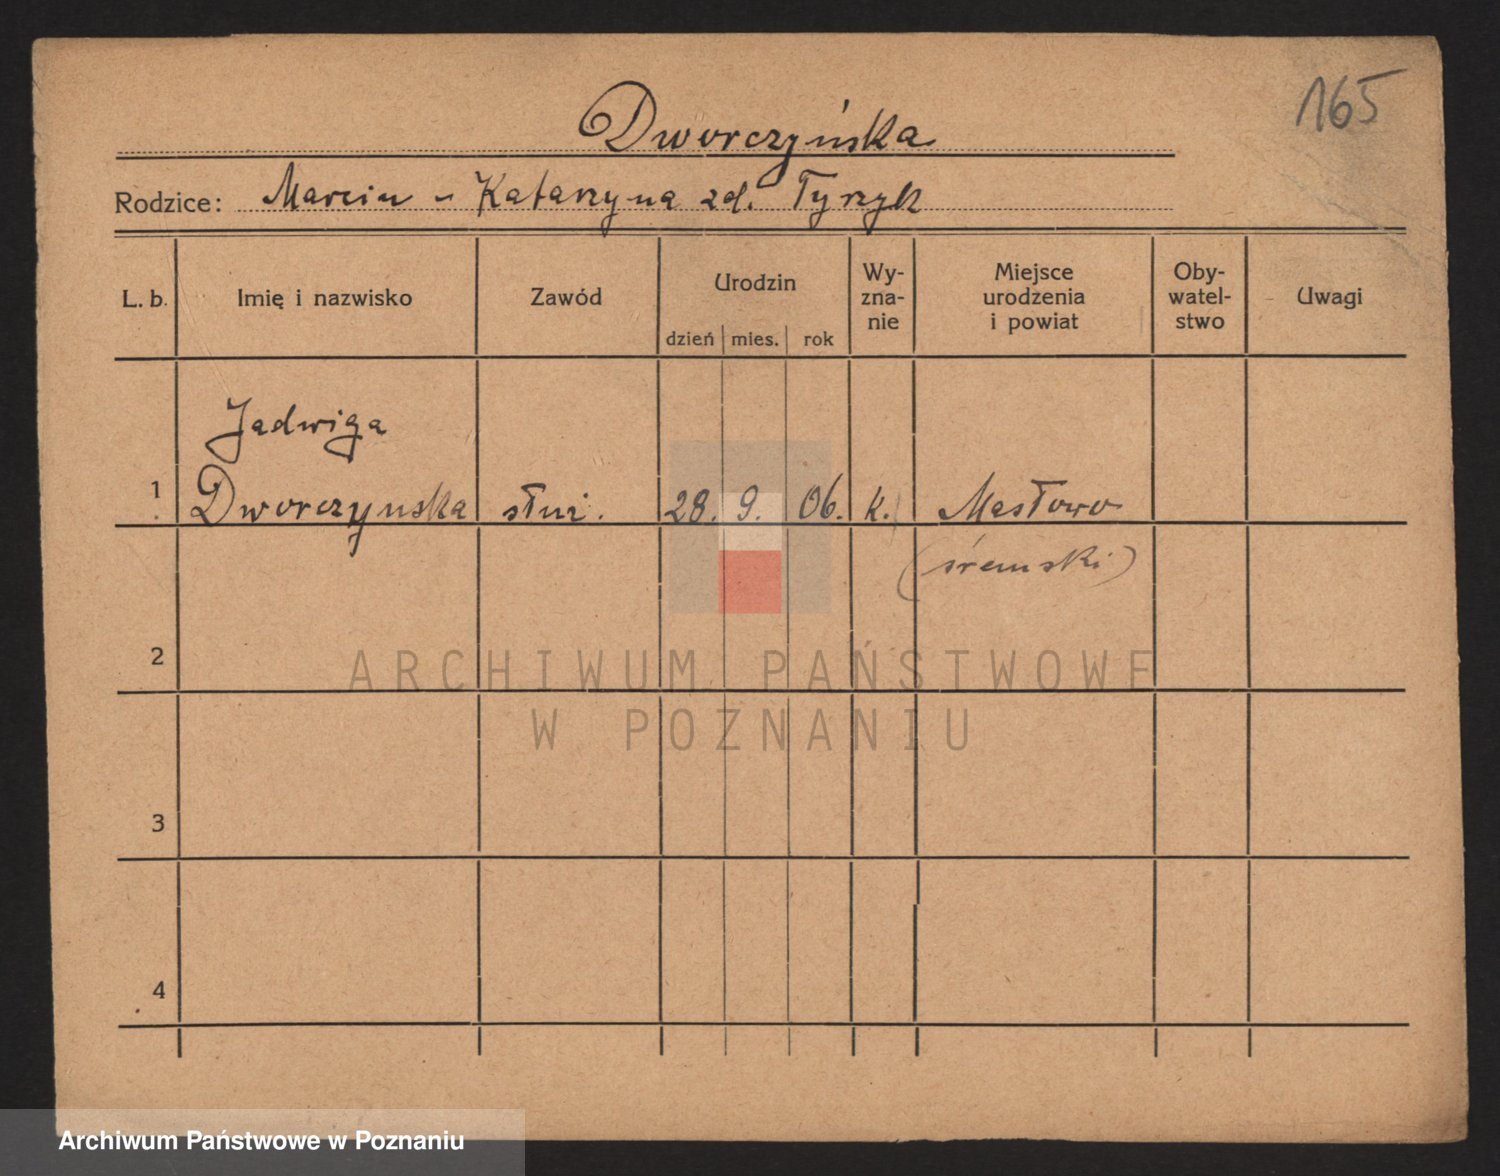 165
Dworczyńska
Rodzice: Marcin - Katarzyna zd. Tyrzyk
L. b. Imię i nazwisko Zawód Urodzin dzień mies. rok Wy-zna-nie Miejsce urodzenia i powiat Oby-watel-stwo Uwagi
Jadwiga
1 Dworczynska służ. 28. 9. 06. k. Masłowo
(śremski)
2
ARCHIWUM PAŃSTWOWE
W POZNANIU
3
4
Archiwum Państwowe w Poznaniu